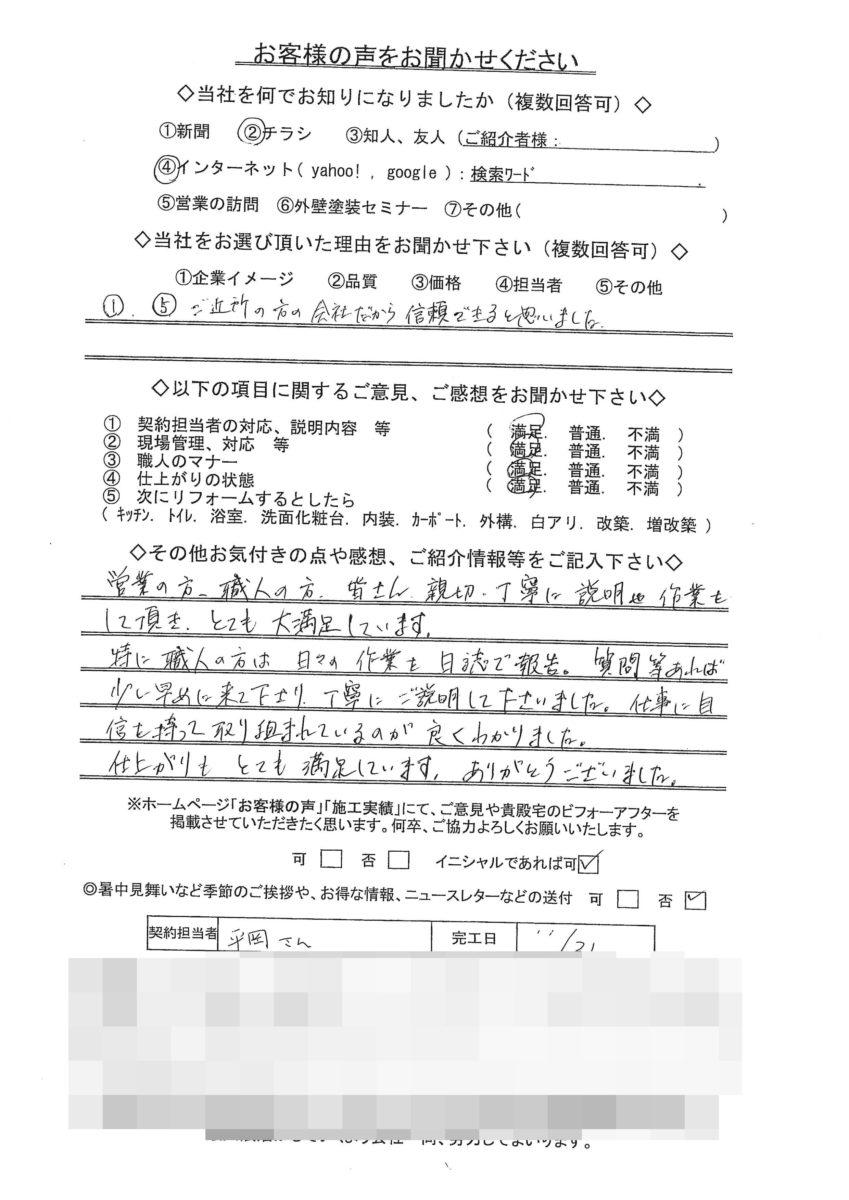 お客様の声をお聞かせください
◇当社を何でお知りになりましたか（複数回答可）◇
①新聞　②チラシ　③知人、友人（ご紹介者様：　　　）
④インターネット( yahoo! , google )：検索ﾜｰﾄﾞ
⑤営業の訪問　⑥外壁塗装セミナー　⑦その他(　　　)
◇当社をお選び頂いた理由をお聞かせ下さい（複数回答可）◇
①企業イメージ　②品質　③価格　④担当者　⑤その他
①.⑤ ご近所の方の会社だから信頼できると思いました.
◇以下の項目に関するご意見、ご感想をお聞かせ下さい◇
①　契約担当者の対応、説明内容　等　（　満足.　普通.　不満　）
②　現場管理、対応　等　（　満足.　普通.　不満　）
③　職人のマナー　（　満足.　普通.　不満　）
④　仕上がりの状態　（　満足.　普通.　不満　）
⑤　次にリフォームするとしたら
（ ｷｯﾁﾝ. ﾄｲﾚ. 浴室. 洗面化粧台. 内装. ｶｰﾎﾟｰﾄ. 外構. 白アリ. 改築. 増改築 ）
◇その他お気付きの点や感想、ご紹介情報等をご記入下さい◇
営業の方、職人の方、皆さん、親切・丁寧に説明や作業を
して頂き、とても大満足しています。
特に職人の方は日々の作業を日誌で報告。質問等あれば
少し早めに来て下さり、丁寧にご説明して下さいました。仕事に自
信を持って取り組まれているのが良くわかりました。
仕上がりもとても満足しています。ありがとうございました。
※ホームページ「お客様の声」「施工実績」にて、ご意見や貴殿宅のビフォーアフターを
掲載させていただきたく思います。何卒、ご協力よろしくお願いいたします。
可 □　否 □　イニシャルであれば可☑
◎暑中見舞いなど季節のご挨拶や、お得な情報、ニュースレターなどの送付　可 □　否 ☑
契約担当者　平岡さん　完工日　11/21